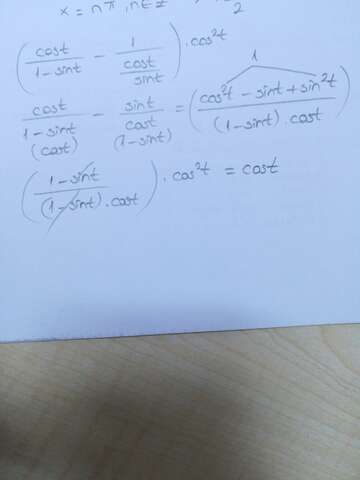 x = nπ, n∈Z 2
(cost/(1-sint) - 1/(cost/sint)) . cos²t
1
cost/(1-sint) - sint/cost = ((cos²t - sint + sin²t)/((1-sint) . cost))
(cost) (1-sint)
((1-sint)/((1-sint) . cost)) . cos²t = cost